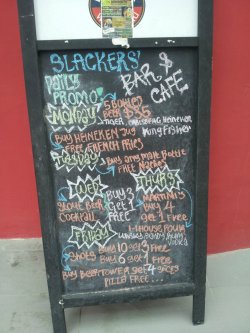 SLACKERS'
BAR &
CAFE
DAILY
PROMO
MONDAY
5 BOTTLED
BEER $35
TIGER, CARLSBERG, HEINEKEN
KINGFISHER
BUY HEINEKEN JUG
FREE FRENCH FRIES
TUESDAY
BUY ANY MALT BOTTLE
FREE NACHOS
WED
THURS
BUY 3
GET 1
FREE
STOUT BEER
COCKTAIL
MARTINIS
BUY 4
GET 1 FREE
FRIDAY
1-HOUSE POUR
SHOTS
BUY 10 GET 3 FREE
BUY 6 GET 1 FREE
BUY BEER TOWER GET 4 SLICES
PIZZA FREE...